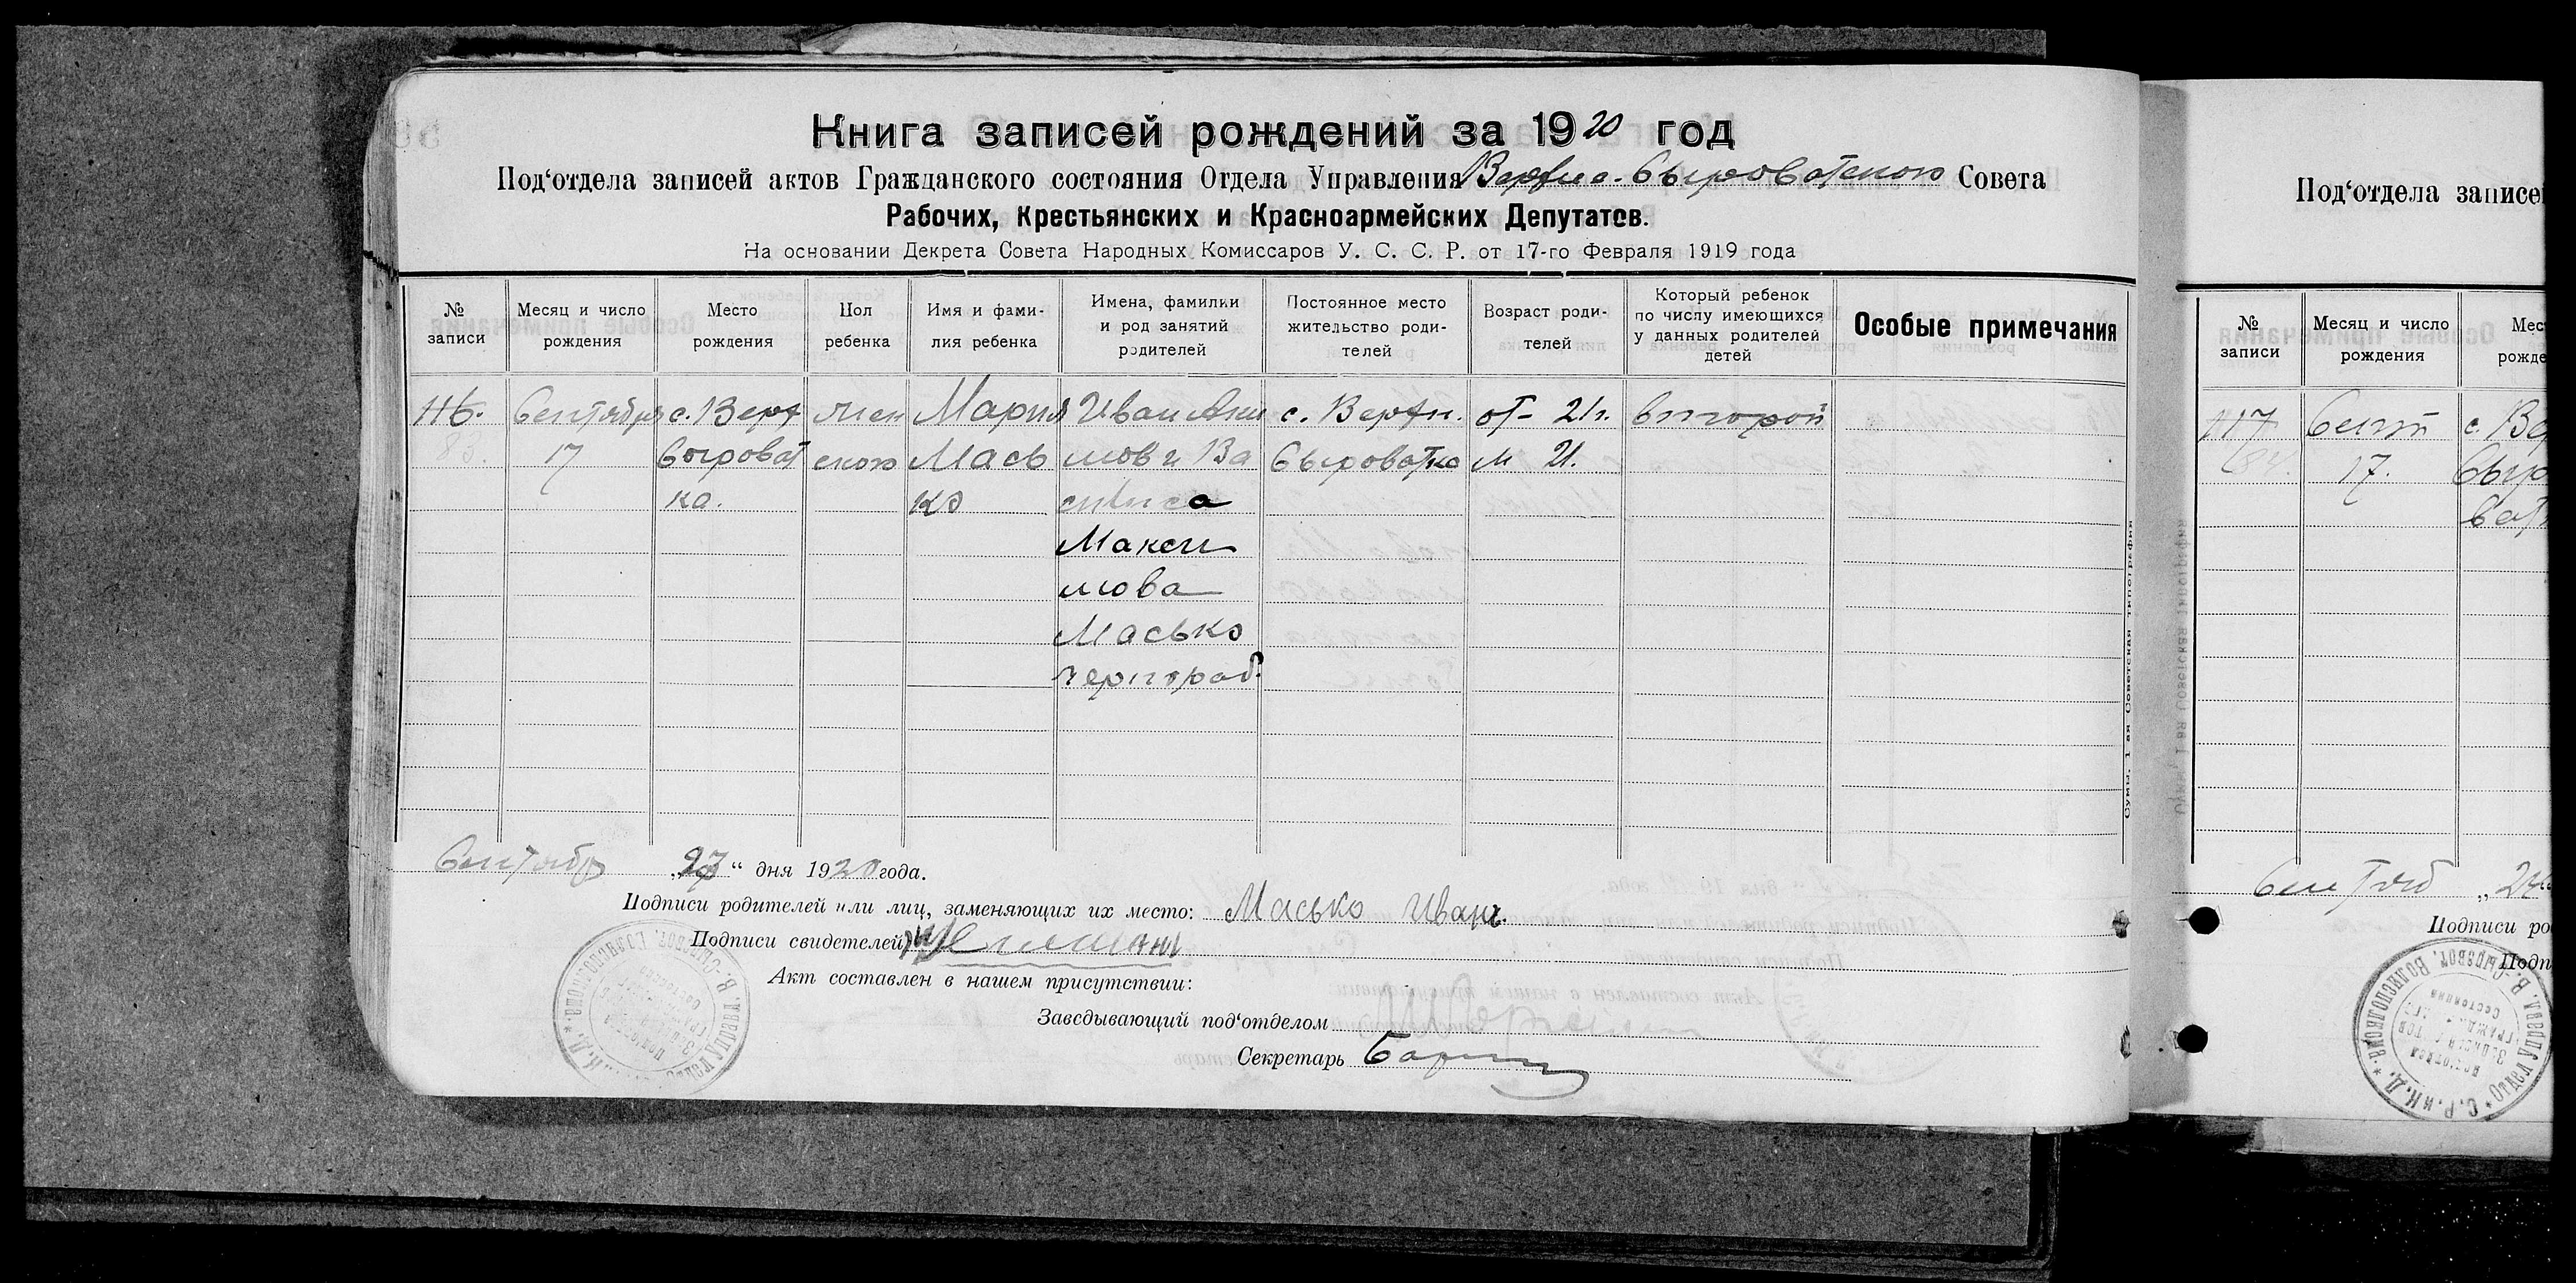 Книга записей рождений за 1920 год
Под‘отдела записей актов Гражданского состояния Отдела Управления Верхне-Сыроватского Совета
Рабочих, Крестьянских и Красноармейских Депутатов.
На основании Декрета Совета Народных Комиссаров У. С. С. Р. от 17-го Февраля 1919 года
№ записи
Месяц и число рождения
Место рождения
Пол ребенка
Имя и фами-
лия ребенка
Имена, фамилии
и род занятий
родителей
Постоянное место
жительство роди-
телей
Возраст роди-
телей
Который ребенок
по числу имеющихся
у данных родителей
детей
Особые примечания
116.
83.
Сентября
17
с. Верх
Сыроват
ка.
жен
ского
Мария
Масько
Иван Аки
мов и Ва
силиса
Макси
мова
Масько
чернораб.
с. Верхн.
Сыроватка
от- 21г.
м 21.
второй
Сумы, 1-ая Советская типография
Сентября „27“ дня 1920 года.
Подписи родителей или лиц, заменяющих их место: Масько Иван.
Подписи свидетелей:
Акт составлен в нашем присутствии:
Заведывающий под‘отделом
Секретарь
Под‘отдела записей
№ записи
Месяц и число рождения
Мес
рожде
117
84.
Сент
17.
с. Ве
Сыр
ват
Сентяб „27
Подписи ро
Подп